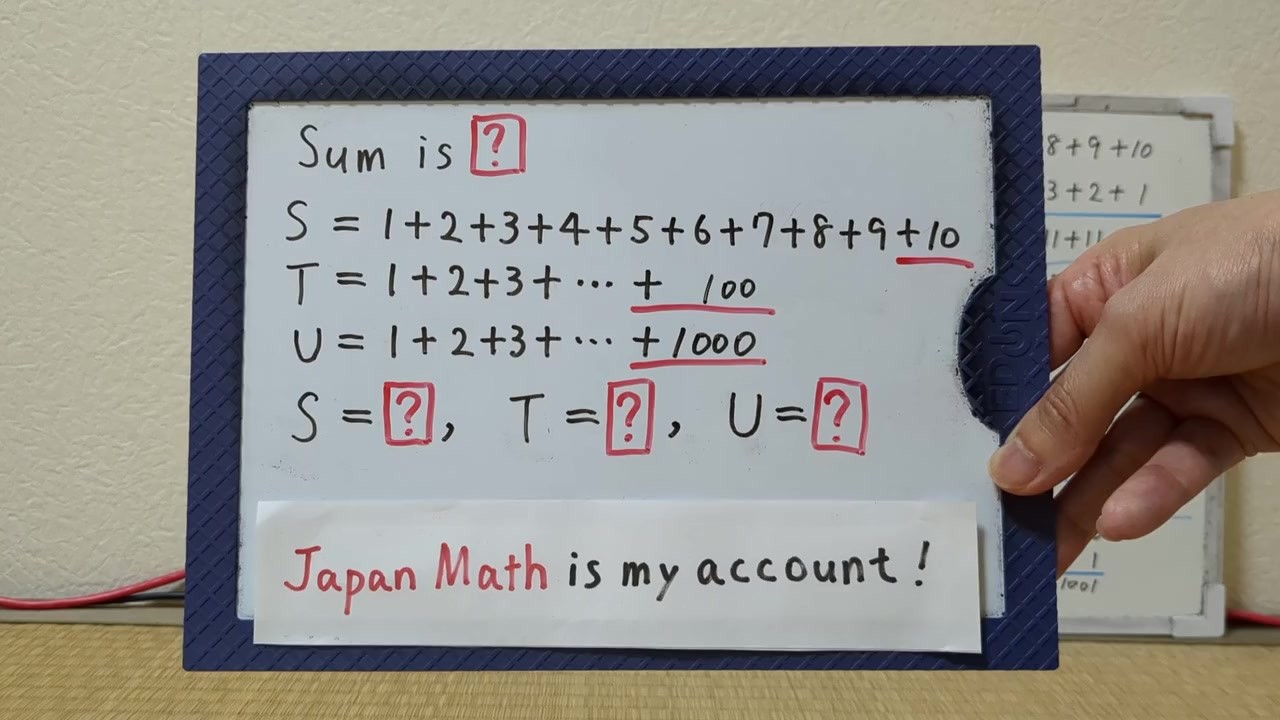 Sum is ?
S = 1+2+3+4+5+6+7+8+9+10
T = 1+2+3+ ··· + 100
U = 1+2+3+ ··· +1000
S = ?, T = ?, U = ?
Japan Math is my account!
8+9+10
3+2+1
11+11
1
1001